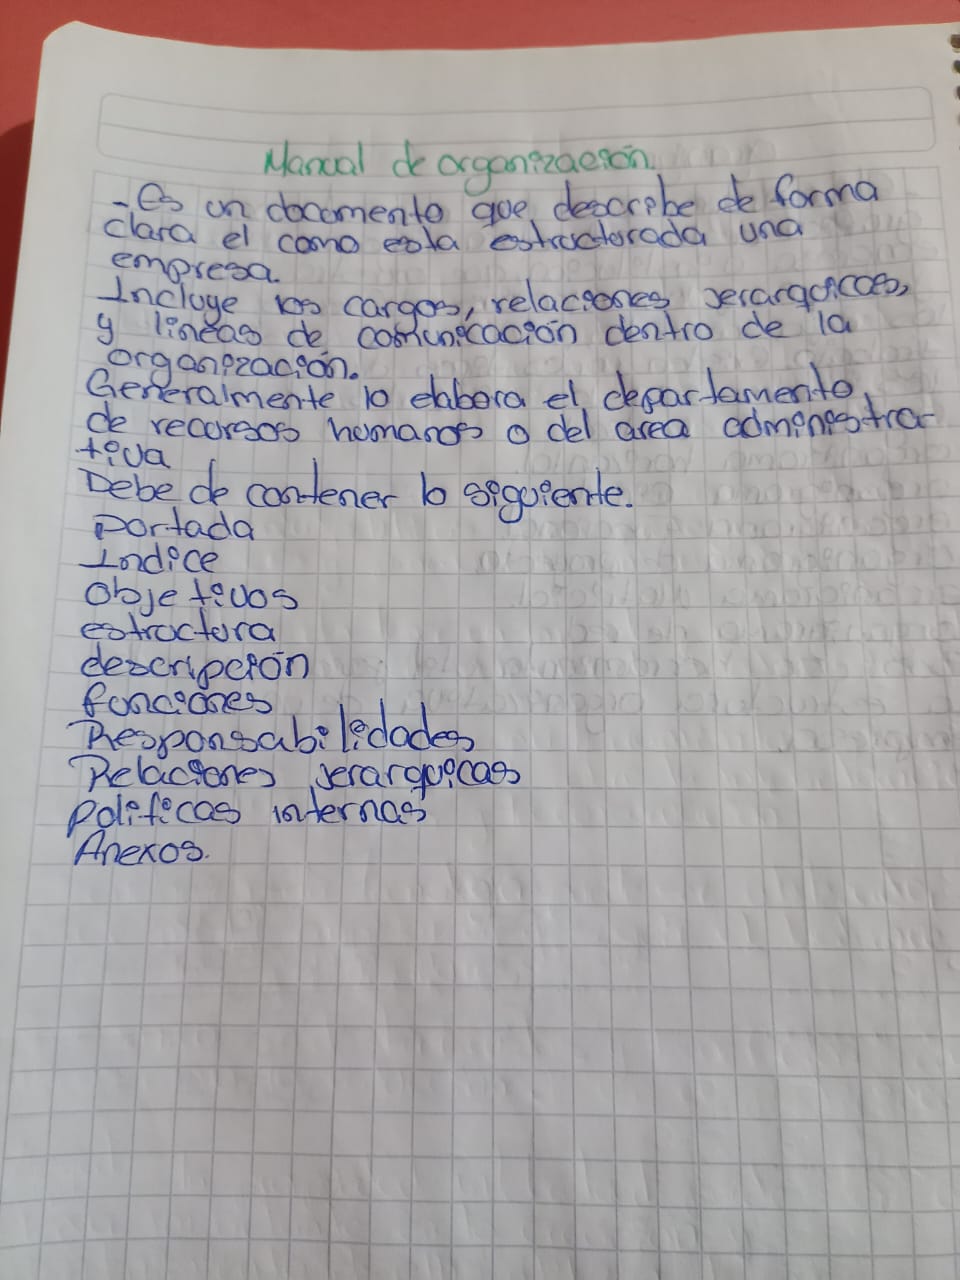 Manual de organización
- Es un documento que describe de forma
clara el como esta estructurada una
empresa.
Incluye los cargos, relaciones jerarquicas,
y lineas de comunicación dentro de la
organización.
Generalmente lo elabora el departamento
de recursos humanos o del area administra-
tiva
Debe de contener lo siguiente.
Portada
Indice
Objetivos
estructura
descripción
funciones
Responsabilidades
Relaciones jerarquicas
politicas internas
Anexos.